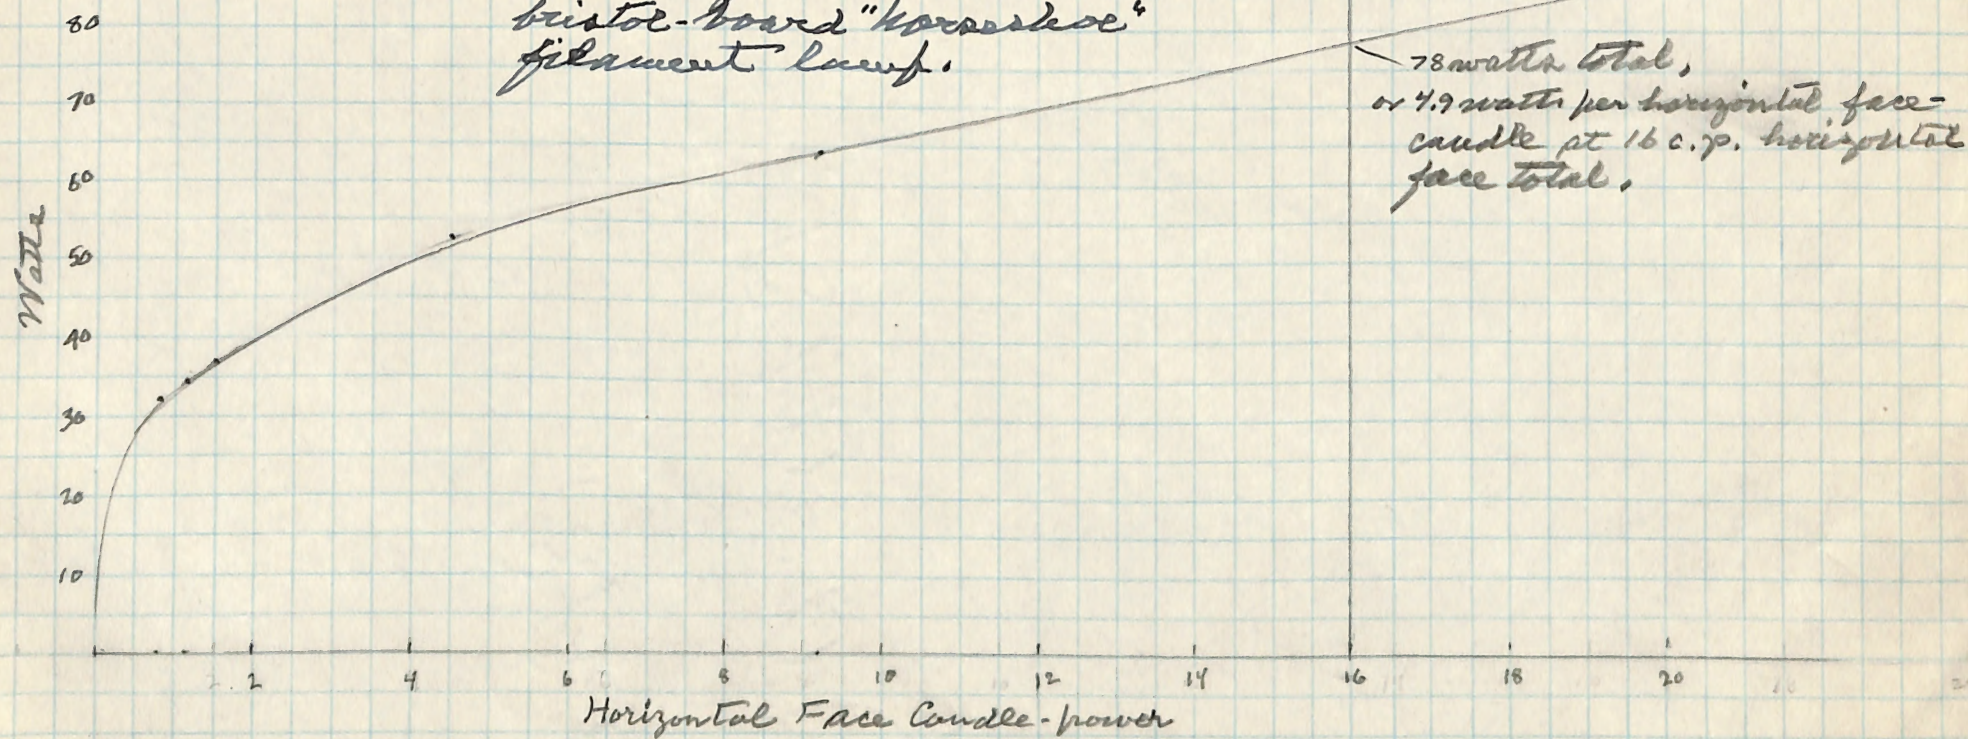 80
bristol-board "horseshoe"
filament lamp.
78 watts total,
70
or 4.9 watts per horizontal face-
candle at 16 c.p. horizontal
face total.
60
50
Watts
40
30
20
10
2 4 6 8 10 12 14 16 18 20
Horizontal Face Candle-power